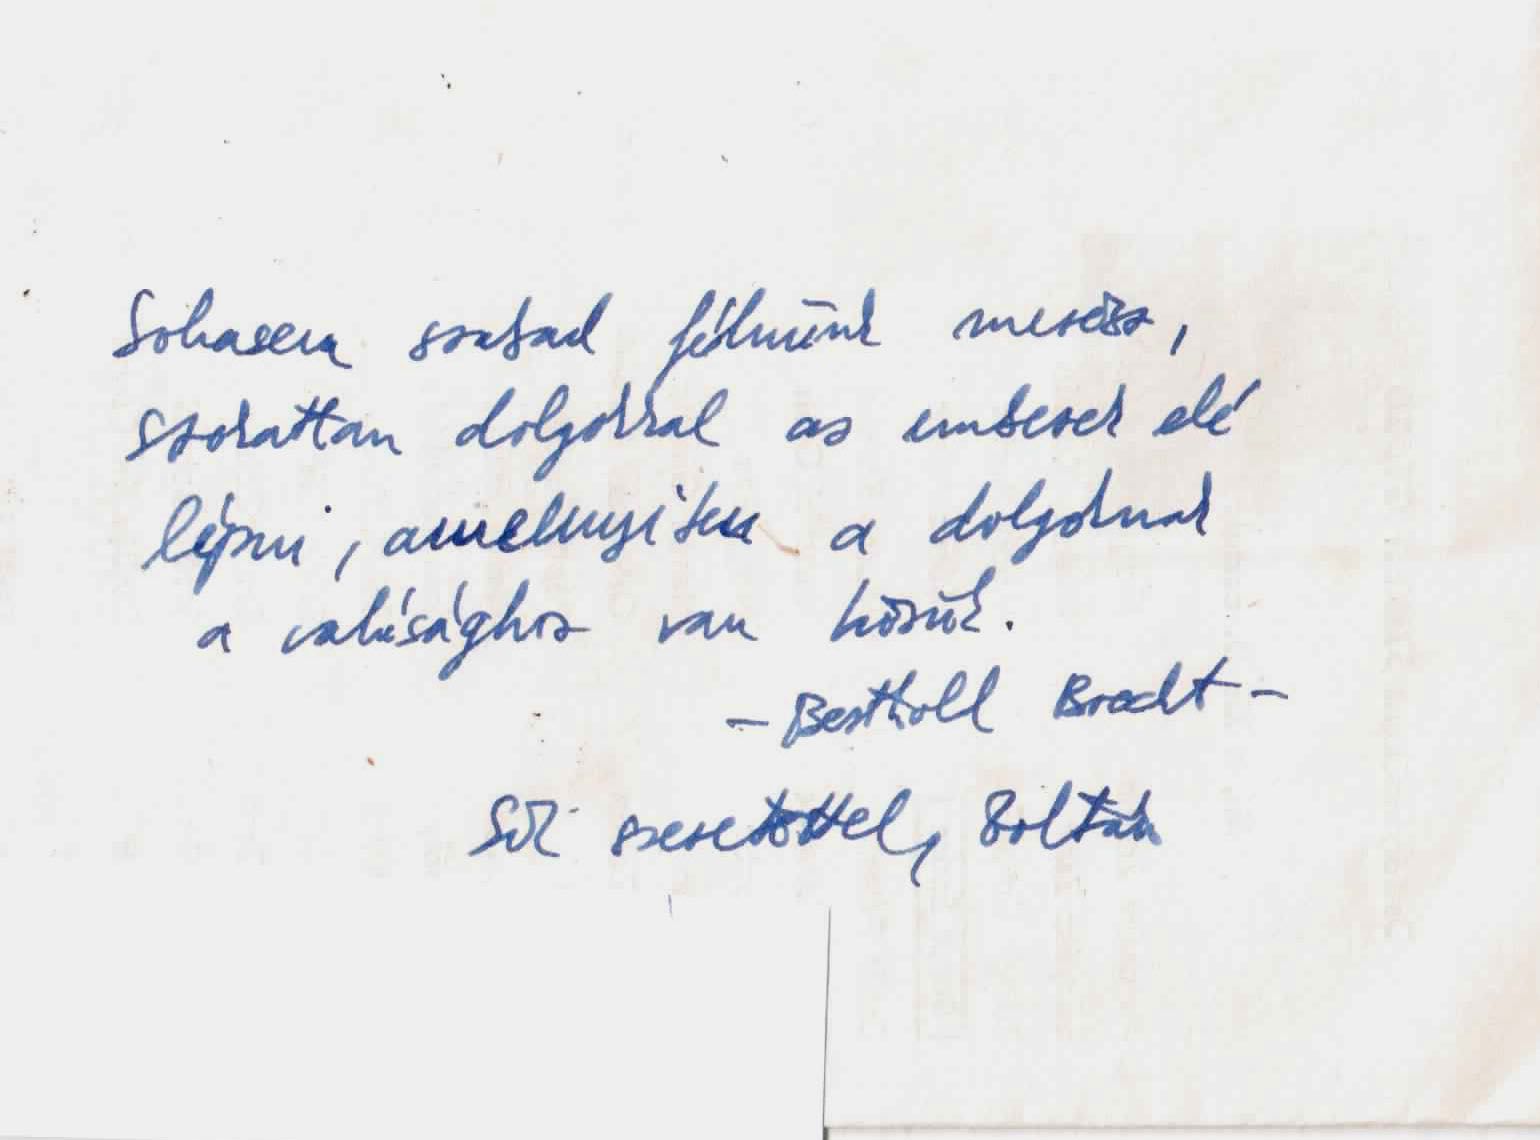 Sohasem szabad félnünk merész,
szokatlan dolgokkal az emberek elé
lépni, amennyiben a dolgoknak
a valósághoz van közük.
- Berthold Brecht -
Sok szeretettel, Zoltán